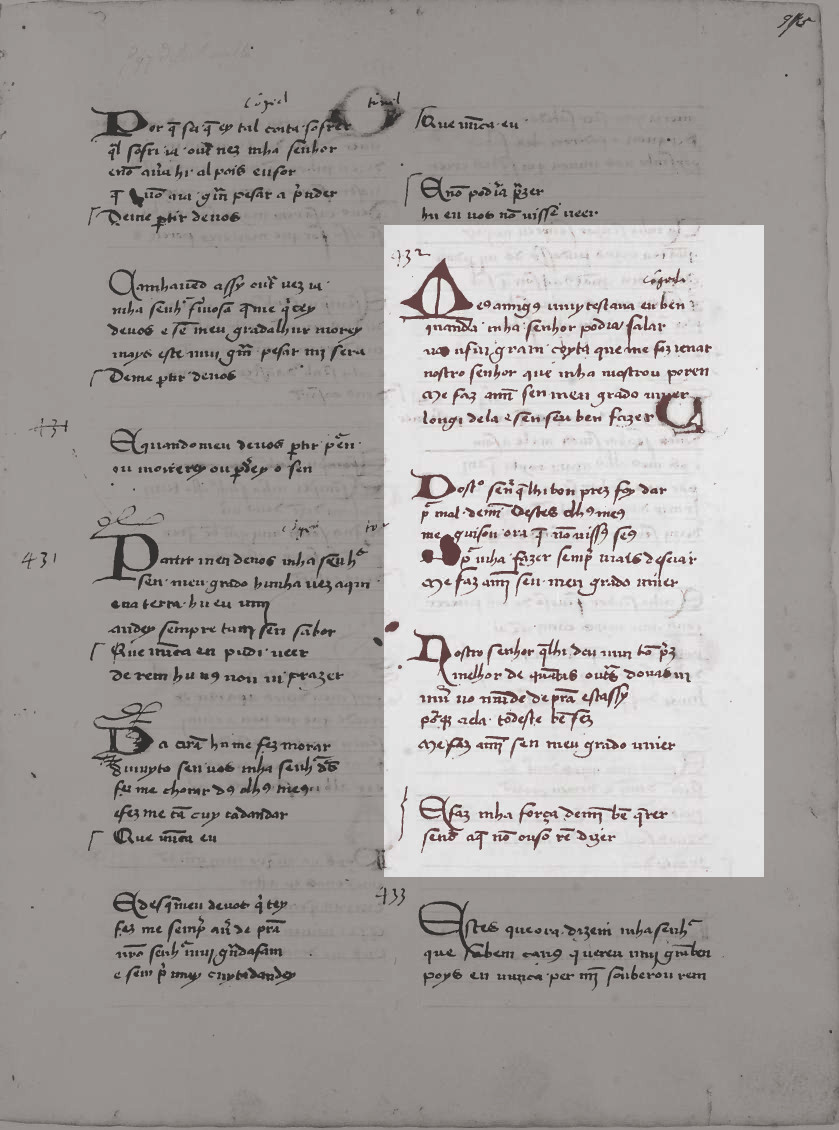 Cōgel tornel
Por q̄ sei q̄ ey tal coita sofrer
q̄l sofri ia outr̄ uez mha senhor
enō auia hi al pois eu for
quō aia g̃m pesar a p̃nder
De me ꝑtir deuos
Ca mhaueo assy outr̄ uez ia
mha senh̄ fm̄osa q̄ me q̄tey
deuos e sē meu grado alhur morey
mays este muj gm̄ pesar mi sera
De me ꝑtir deuos
431
E quando meu deuos ꝑtir
ou morrerey ou ꝑdrey o sen
431
Partir men deuos mha senhor
sen meu grado hunha uez aqui
ena terra hu eu uiui
andey sempre tam sen sabor
Que nūca eu pudi ueer
de rem hu uꝯ non ui prazer
Da cuā hu me fez morar
muyto sen uos mha senh̄ ds̄
fez me chorar dꝯ olhꝯ meꝯ
e fez me tā cuytadandar
Que nūca eu
E des q̄ meu deuos q̄tey
fez me semp̄ auer de prā
nrō senh̄ muj gūdafam
e semp̄ muy cuytadandey
Que nūca eu
E nō podia p̃zer
hu eu uos nō uisse ueer
432
Meꝯ amigꝯ muytestaua eu ben
quandā mha senhor podia falar
na muj gram coyta que me faz leuar
nostro senhor que mha mostrou poren
Me faz ami sen meu grado uiuer
longi dela e sen seu ben fazer
Nostrº señ q̄ lhi bon prez foy dar
p̄ mal demī Destes olhꝯ meꝯ
me guisou ora q̄ nō uissꝰ seꝯ
p̄ mha fazer semp̄ mais deseiar
Me faz ami sen meu grado uiuer
Nostro senhor q̄ lhi deu mui bō p̃z
melhor de quātas outrꝯ donas ui
de prā estassy
dela todeste bē fez
Me faz ami sen meu grado uiuer
E faz mha força demī bē q̄rer
senō aq̄ nō ouso rē dizer
433
Estes que ora dizem mha senhor
que sabem camꝯ quereu muj gm̄ ben
poys en nunca per mī souberou rem